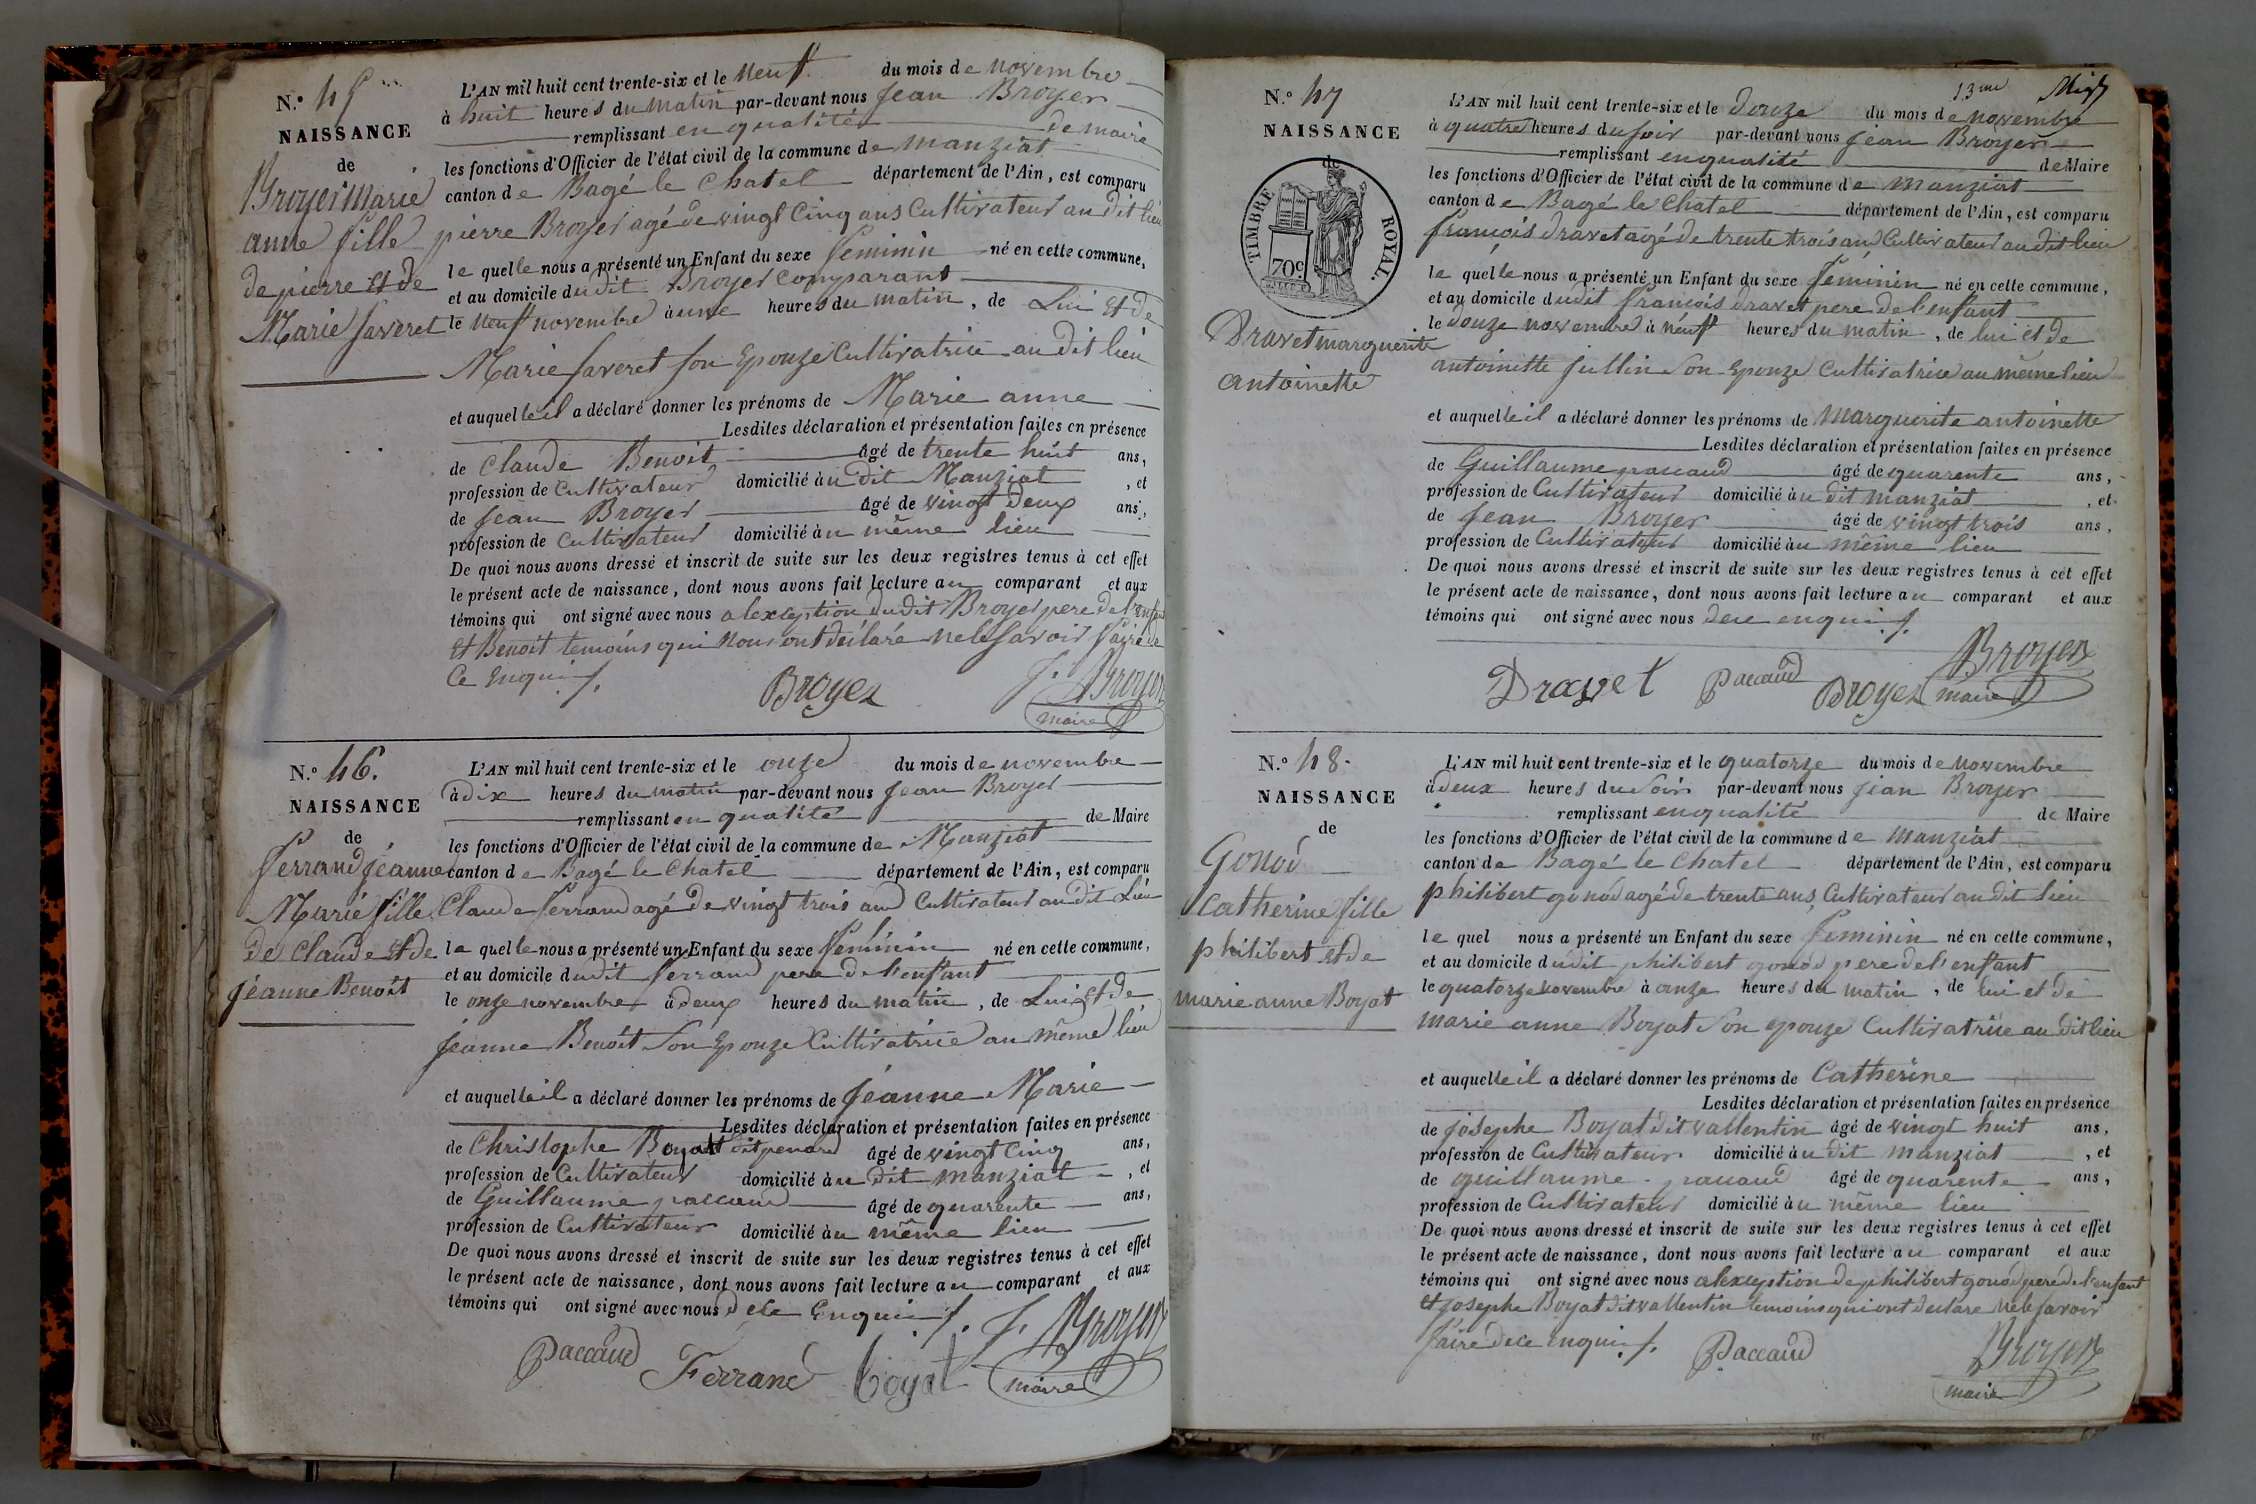 N.º 45
NAISSANCE
de
Broyer Marie
anne fille
de pierre et de
Marie faveret
L'AN mil huit cent trente-six et le neuf du mois de novembre
à huit heures du matin par-devant nous Jean Broyer
remplissant en qualité de maire
les fonctions d'Officier de l'état civil de la commune de manziat
canton de Bagé le Chatel département de l'Ain, est comparu
pierre Broyer agé de vingt Cinq ans Cultivateur au dit lieu
le quelle nous a présenté un Enfant du sexe feminin né en cette commune,
et au domicile dudit Broyer Comparant
le neuf novembre à une heures du matin, de Lui et de
Marie faveret son Epouze Cultivatrice au dit lieu
et auquelle il a déclaré donner les prénoms de Marie anne
Lesdites déclaration et présentation faites en présence
de Claude Benoit âgé de trente huit ans,
profession de Cultivateur domicilié àu dit Manziat, et
de Jean Broyer âgé de vingt deux ans,
profession de Cultivateur domicilié àu même lieu
De quoi nous avons dressé et inscrit de suite sur les deux registres tenus à cet effet
le présent acte de naissance, dont nous avons fait lecture au comparant et aux
témoins qui ont signé avec nous a lexception dudit Broyer pere de l'enfant
et Benoit temoins qui nous ont déclaré ne le savoir faire de
Ce Enquis
Broyer J. Broyer
maire
N.º 46.
NAISSANCE
de
ferrand jéanne
Marie fille
de Claude et de
jéanne Benoit
L'AN mil huit cent trente-six et le onze du mois de novembre
à dix heures du matin par-devant nous Jean Broyer
remplissant en qualité de Maire
les fonctions d'Officier de l'état civil de la commune de Manziat
canton de Bagé le Chatel département de l'Ain, est comparu
Claude ferrand agé de vingt trois ans Cultivateur au dit Lieu
le quelle nous a présenté un Enfant du sexe feminin né en cette commune,
et au domicile dudit ferrand pere de l'enfant
le onze novembre à deux heures du matin, de Lui et de
jéanne Benoit son Epouze Cultivatrice au même lieu
et auquelle il a déclaré donner les prénoms de jéanne Marie
Lesdites déclaration et présentation faites en présence
de Christophe Boyat dit penard âgé de vingt Cinq ans,
profession de Cultivateur domicilié àu dit manziat, et
de Guillaume paccaud âgé de quarente ans,
profession de Cultivateur domicilié àu même lieu
De quoi nous avons dressé et inscrit de suite sur les deux registres tenus à cet effet
le présent acte de naissance, dont nous avons fait lecture au comparant et aux
témoins qui ont signé avec nous de ce Enquis
J. Broyer
Paccaud Ferrand boyat maire
13me
N.º 47
NAISSANCE
de
TIMBRE ROYAL.
70c
Dravet marguerite
antoinette
L'AN mil huit cent trente-six et le douze du mois de novembre
à quatre heures du soir par-devant nous jean Broyer
remplissant en qualité de Maire
les fonctions d'Officier de l'état civil de la commune de manziat
canton de Bagé le Chatel département de l'Ain, est comparu
françois dravet agé de trente trois ans Cultivateur au dit lieu
le quelle nous a présenté un Enfant du sexe féminin né en cette commune,
et au domicile dudit françois dravet pere de l'enfant
le douze novembre à neuf heures du matin, de lui et de
antoinette jullin son Epouze Cultivatrice au même lieu
et auquelle il a déclaré donner les prénoms de marguerite antoinette
Lesdites déclaration et présentation faites en présence
de Guillaume paccaud âgé de quarente ans,
profession de Cultivateur domicilié àu dit manziat, et
de Jean Broyer âgé de vingt trois ans,
profession de Cultivateur domicilié àu même lieu
De quoi nous avons dressé et inscrit de suite sur les deux registres tenus à cet effet
le présent acte de naissance, dont nous avons fait lecture au comparant et aux
témoins qui ont signé avec nous de ce enquis
Broyer
Dravet Paccaud Broyer maire
N.º 48.
NAISSANCE
de
Gonod
Catherine fille
philibert et de
marie anne Boyat
L'AN mil huit cent trente-six et le quatorze du mois de novembre
à deux heures du soir par-devant nous jean Broyer
remplissant en qualité de Maire
les fonctions d'Officier de l'état civil de la commune de manziat
canton de Bagé le Chatel département de l'Ain, est comparu
philibert gonod agé de trente ans, Cultivateur au dit lieu
le quel nous a présenté un Enfant du sexe feminin né en cette commune,
et au domicile dudit philibert gonod pere de l'enfant
le quatorze novembre à onze heures du matin, de lui et de
marie anne Boyat son epouze Cultivatrice au dit lieu
et auquelle il a déclaré donner les prénoms de Catherine
Lesdites déclaration et présentation faites en présence
de josephe Boyat dit vallentin âgé de vingt huit ans,
profession de Cultivateur domicilié àu dit manziat, et
de guillaume paccaud âgé de quarente ans,
profession de Cultivateur domicilié àu même lieu
De quoi nous avons dressé et inscrit de suite sur les deux registres tenus à cet effet
le présent acte de naissance, dont nous avons fait lecture au comparant et aux
témoins qui ont signé avec nous a lexception de philibert gonod pere de l'enfant
et josephe Boyat dit vallentin temoins qui ont declare ne le savoir
faire de ce enquis
Paccaud Broyer
maire